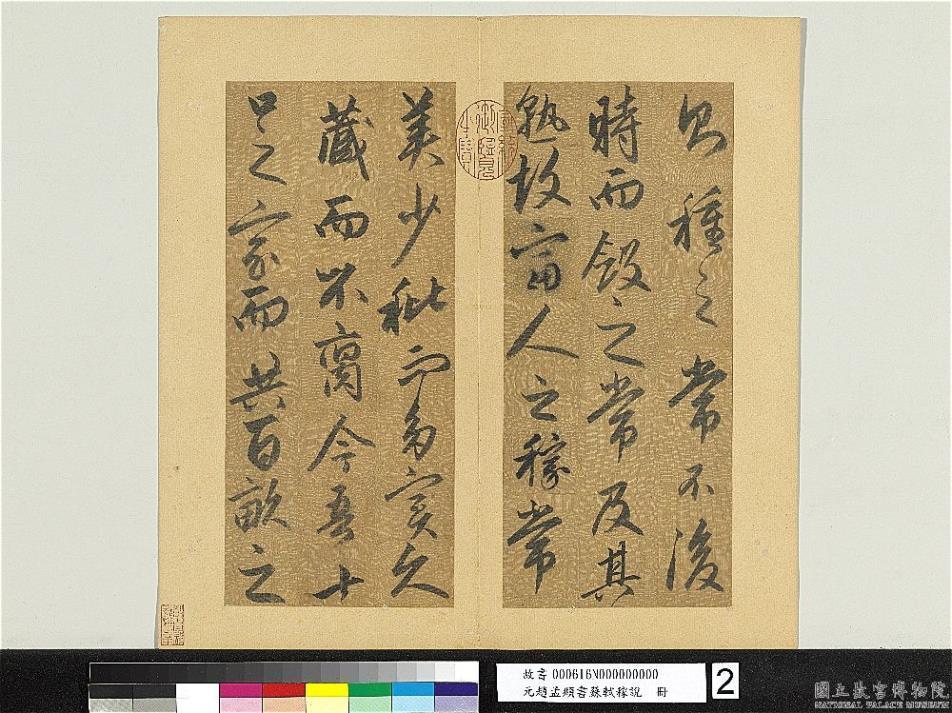 則種之常不後
時而斂之常及其
熟故富人之稼常
美少秕而多實久
藏而不腐今吾十
口之家而共百畝之
乾隆御覽之寶
故書 000616N000000000
元趙孟頫書蘇軾稼說 冊
2
國立故宮博物院
NATIONAL PALACE MUSEUM